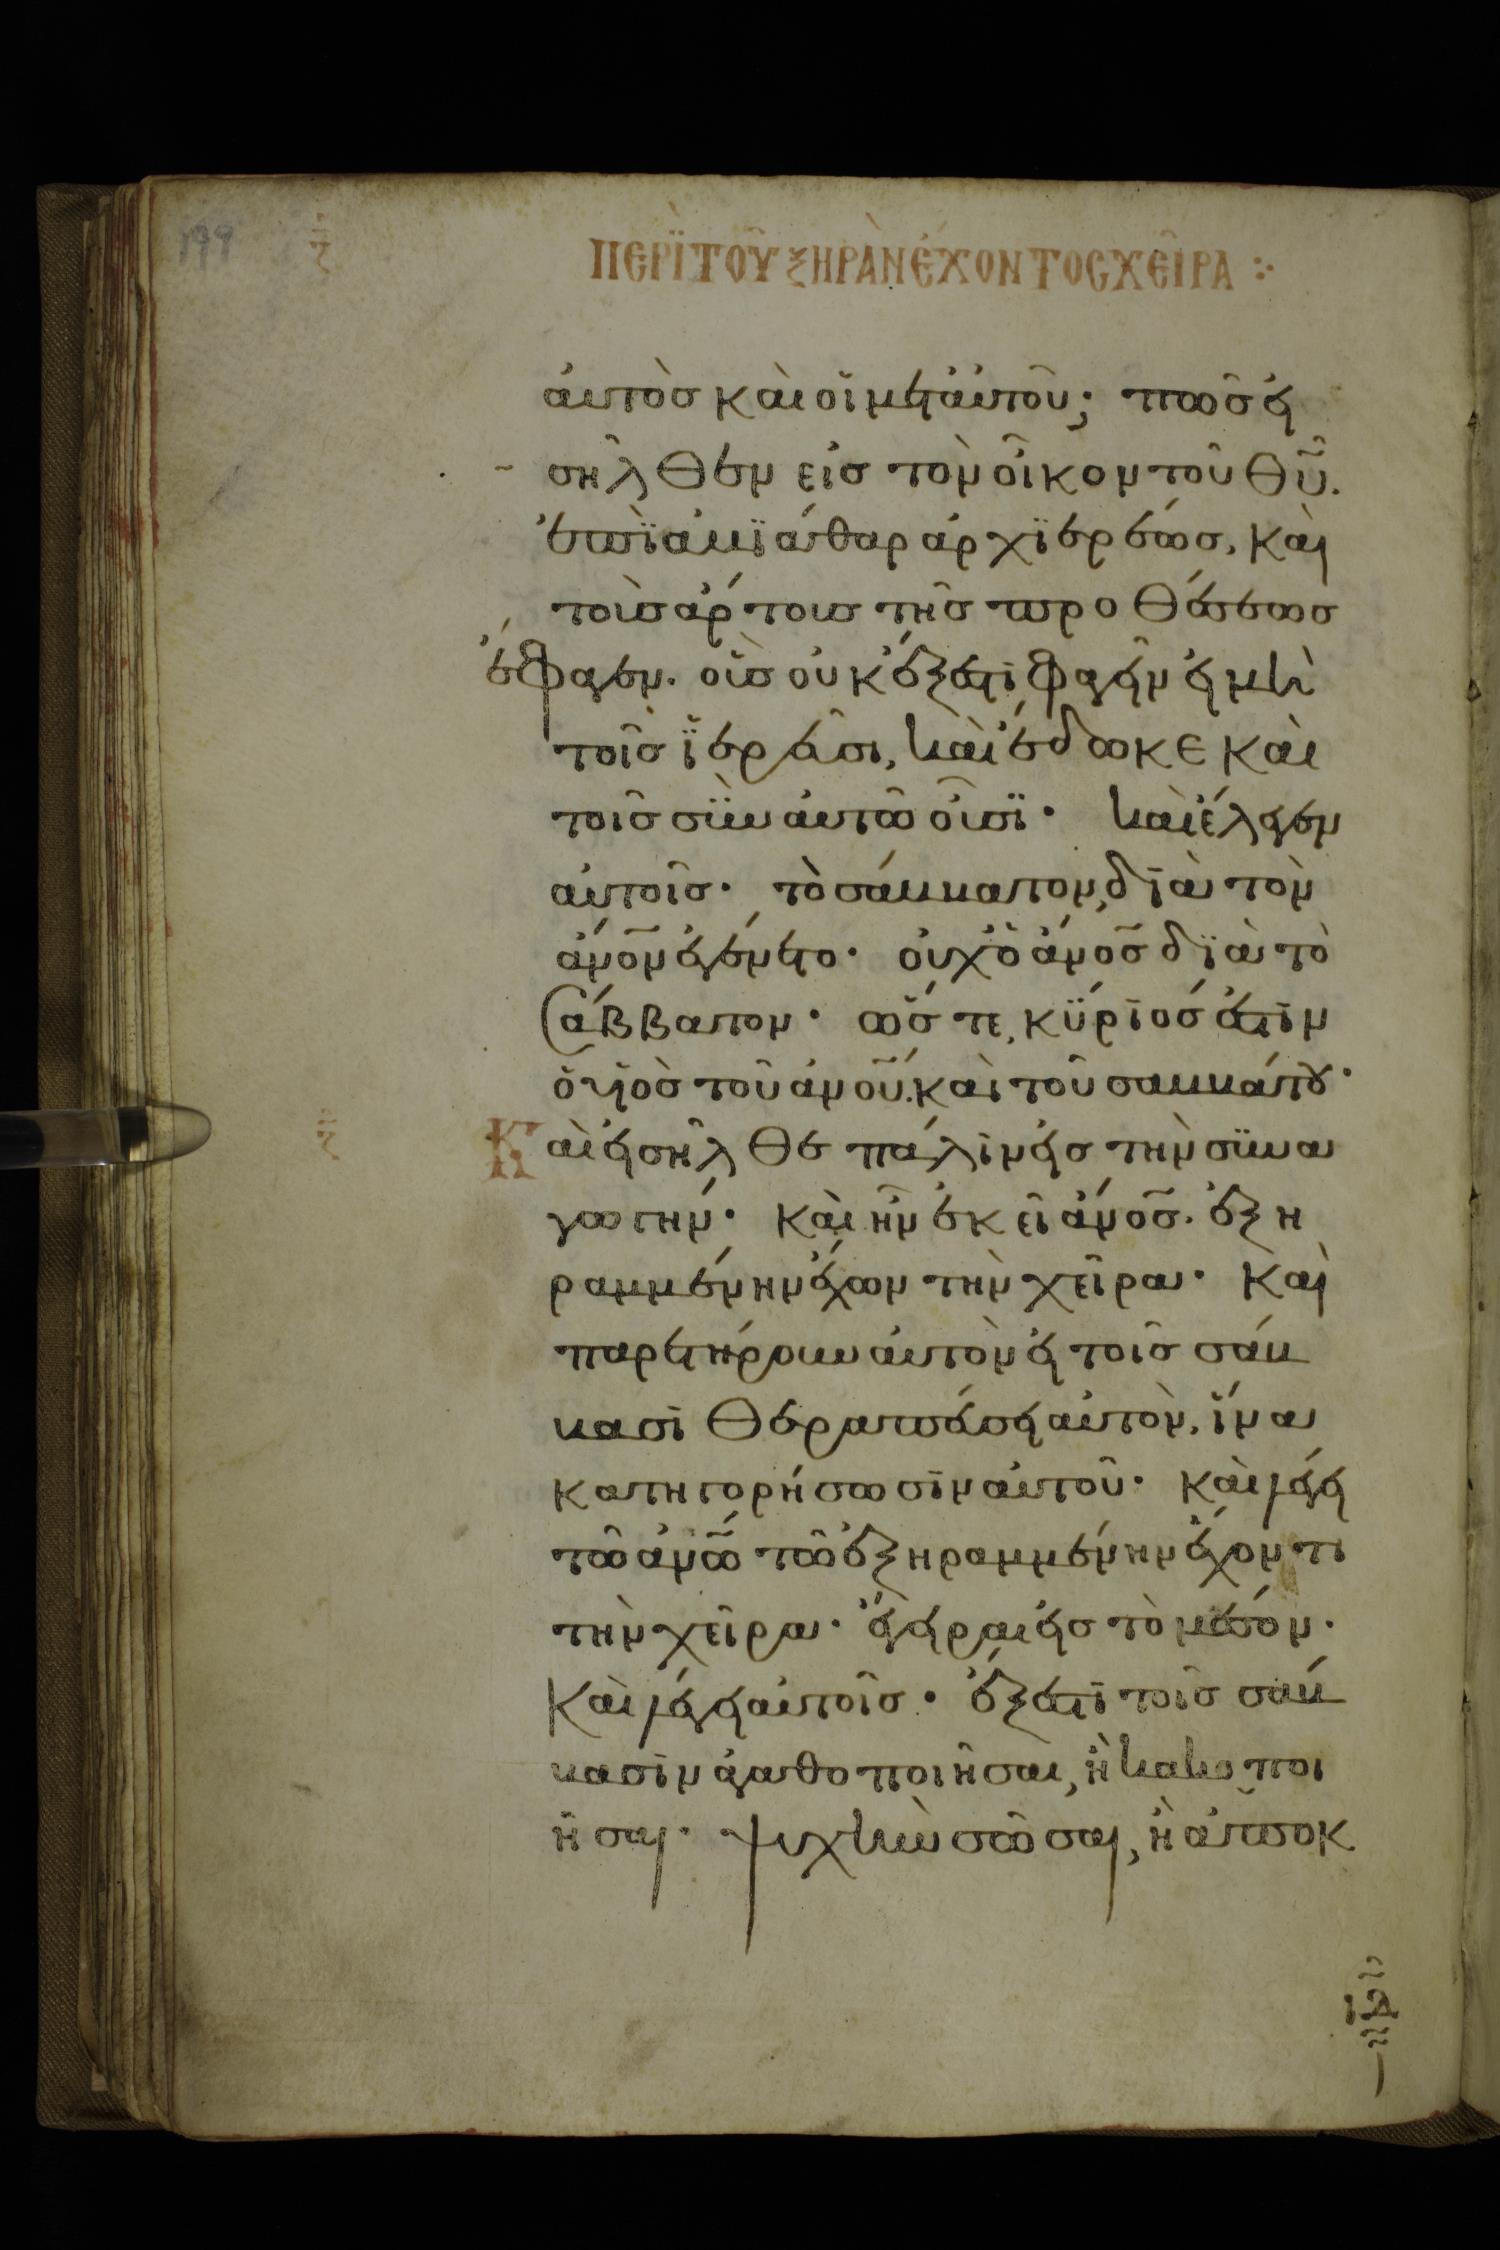 199
ϛ
ΠΕΡῚ ΤΟΥ͂ ΞΗΡᾺΝ ἜΧΟΝΤΟϹ ΧΕΙ͂ΡΑ
ἀυτὸσ κὰι οἱ μετ ἀυτοῦ; πῶσ ἐι
σῆλθεν εἰσ τὸν οἶκον τοῦ θῡ.
ἐπὶ ἀβϊάθαρ ἀρχϊερέωσ, κὰι
τοὺσ ἄρτουσ τῆσ προθέσεωσ
ἔφαγεν. οὓσ ὀυκ ἔξεστι φαγεῖν ἐι μὴ
τοῖσ ἱερεῦσι, κὰι ἔδωκε κὰι
τοῖσ σὺν ἀυτῶ οὖσϊ· κὰι ἔλεγεν
ἀυτοῖσ· τὸ σάββατον, διὰ τὸν
ἄν̅ο̅ν ἐγένετο· ὀυχ ὁ ἄν̅ο̅σ διὰ τὸ
Σάββατον· ὥστε, κύριόσ ἐστιν
ὁ υἱὸσ τοῦ ἀν̅ο̅υ. κὰι τοῦ σαββάτου·
Κὰι ἐισῆλθε πάλιν ἐισ τὴν σϋνα
γωγήν· κὰι ἦν ἐκεῖ ἄν̅ο̅σ. ἐξη
ραμμένην ἔχων τὴν χεῖρα· Κὰι
παρετήρουν ἀυτὸν ἐι τοῖσ σάβ
βασι θεραπέυσει ἀυτὸν, ἵνα
κατηγορήσωσιν ἀυτοῦ· κὰι λέγει
τῶ ἀν̅ω̅ τῶ ἐξηραμμένην ἔχοντι
τὴν χεῖρα· ἔγειραι ἐισ τὸ μέσον.
Κὰι λέγει ἀυτοῖσ· ἔξεστι τοῖσ σάβ
βασιν ἀγαθοποιῆσαι, ἢ κακοποι
ῆσαι· ψυχὴν σῶσαι, ἢ ἀποκ